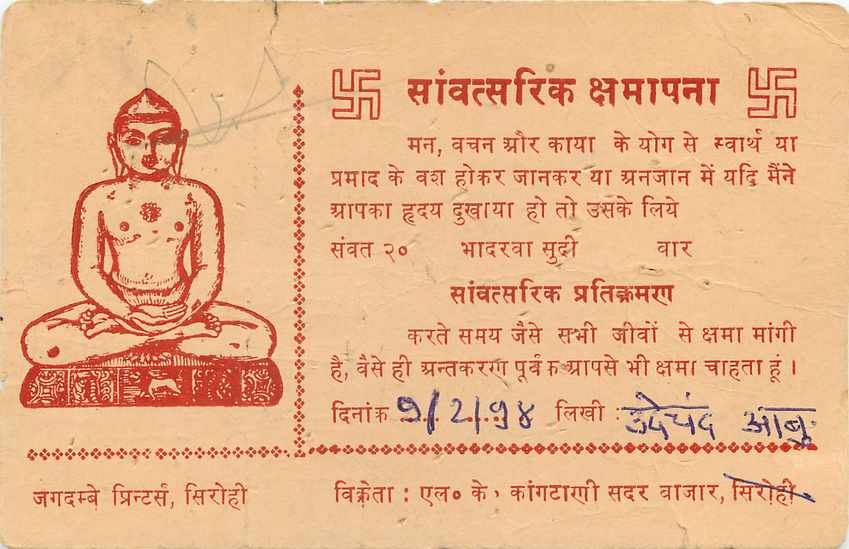 सांवत्सरिक क्षमापना
मन, वचन और काया के योग से स्वार्थ या
प्रमाद के वश होकर जानकर या अनजान में यदि मैंने
आपका हृदय दुखाया हो तो उसके लिये
संवत २० भादरवा सुदी वार
सांवत्सरिक प्रतिक्रमण
करते समय जैसे सभी जीवों से क्षमा मांगी
है, वैसे ही अन्तकरण पूर्वक आपसे भी क्षमा चाहता हूं ।
दिनांक लिखी : उदेचंद आबु
जगदम्बे प्रिन्टर्स, सिरोही
विक्रेता : एल० के० कांगटाणी सदर बाजार, सिरोही